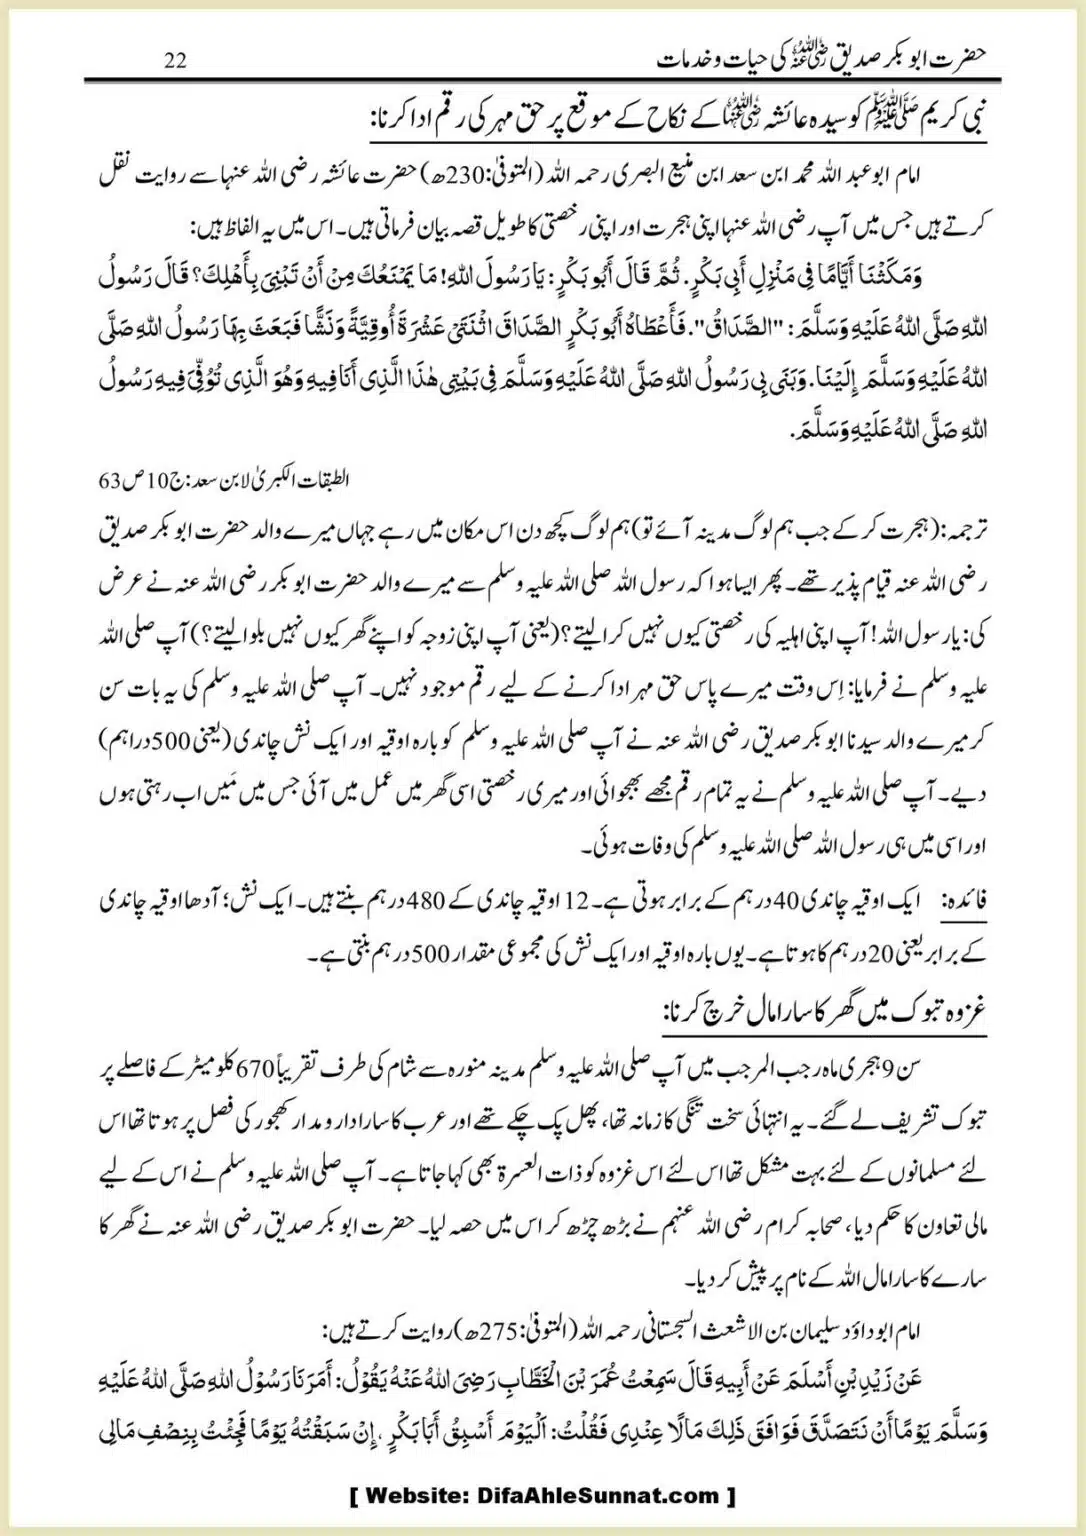 حضرت ابو بکر صدیق رضی اللہ عنہ کی حیات و خدمات
22
نبی کریم صلی اللہ علیہ وسلم کو سیدہ عائشہ رضی اللہ عنہا کے نکاح کے موقع پر حق مہر کی رقم ادا کرنا:
امام ابو عبد اللہ محمد ابن سعد ابن منیع البصری رحمہ اللہ (المتوفیٰ:230ھ) حضرت عائشہ رضی اللہ عنہا سے روایت نقل
کرتے ہیں جس میں آپ رضی اللہ عنہا اپنی ہجرت اور اپنی رخصتی کا طویل قصہ بیان فرماتی ہیں۔ اس میں یہ الفاظ ہیں:
وَمَكَثْنَا أَيَّامًا فِي مَنْزِلِ أَبِي بَكْرٍ. ثُمَّ قَالَ أَبُو بَكْرٍ: يَا رَسُولَ اللهِ! مَا يَمْنَعُكَ مِنْ أَنْ تَبْنِيَ بِأَهْلِكَ؟ قَالَ رَسُولُ
اللهِ صَلَّى اللهُ عَلَيْهِ وَسَلَّمَ: "الصَّدَاقُ". فَأَعْطَاهُ أَبُو بَكْرٍ الصَّدَاقَ اثْنَتَيْ عَشْرَةَ أُوقِيَّةً وَنَشًّا فَبَعَثَ بِهَا رَسُولُ اللهِ صَلَّى
اللهُ عَلَيْهِ وَسَلَّمَ إِلَيْنَا. وَبَنَى بِي رَسُولُ اللهِ صَلَّى اللهُ عَلَيْهِ وَسَلَّمَ فِي بَيْتِي هٰذَا الَّذِي أَنَا فِيهِ وَهُوَ الَّذِي تُوُفِّيَ فِيهِ رَسُولُ
اللهِ صَلَّى اللهُ عَلَيْهِ وَسَلَّمَ.
الطبقات الکبریٰ لابن سعد: ج10 ص63
ترجمہ: (ہجرت کر کے جب ہم لوگ مدینہ آئے تو) ہم لوگ کچھ دن اس مکان میں رہے جہاں میرے والد حضرت ابو بکر صدیق
رضی اللہ عنہ قیام پذیر تھے۔ پھر ایسا ہوا کہ رسول اللہ صلی اللہ علیہ وسلم سے میرے والد حضرت ابو بکر رضی اللہ عنہ نے عرض
کی: یا رسول اللہ! آپ اپنی اہلیہ کی رخصتی کیوں نہیں کرا لیتے؟ (یعنی آپ اپنی زوجہ کو اپنے گھر کیوں نہیں بلوا لیتے؟) آپ صلی اللہ
علیہ وسلم نے فرمایا: اِس وقت میرے پاس حق مہر ادا کرنے کے لیے رقم موجود نہیں۔ آپ صلی اللہ علیہ وسلم کی یہ بات سن
کر میرے والد سیدنا ابو بکر صدیق رضی اللہ عنہ نے آپ صلی اللہ علیہ وسلم کو بارہ اوقیہ اور ایک نش چاندی (یعنی 500 دراہم)
دیے۔ آپ صلی اللہ علیہ وسلم نے یہ تمام رقم مجھے بھجوائی اور میری رخصتی اسی گھر میں عمل میں آئی جس میں مَیں اب رہتی ہوں
اور اسی میں ہی رسول اللہ صلی اللہ علیہ وسلم کی وفات ہوئی۔
فائدہ: ایک اوقیہ چاندی 40 درہم کے برابر ہوتی ہے۔ 12 اوقیہ چاندی کے 480 درہم بنتے ہیں۔ ایک نش؛ آدھا اوقیہ چاندی
کے برابر یعنی 20 درہم کا ہوتا ہے۔ یوں بارہ اوقیہ اور ایک نش کی مجموعی مقدار 500 درہم بنتی ہے۔
غزوہ تبوک میں گھر کا سارا مال خرچ کرنا:
سن 9 ہجری ماہ رجب المرجب میں آپ صلی اللہ علیہ وسلم مدینہ منورہ سے شام کی طرف تقریباً 670 کلو میٹر کے فاصلے پر
تبوک تشریف لے گئے۔ یہ انتہائی سخت تنگی کا زمانہ تھا، پھل پک چکے تھے اور عرب کا سارا دار و مدار کھجور کی فصل پر ہوتا تھا اس
لئے مسلمانوں کے لئے بہت مشکل تھا اس لئے اس غزوہ کو ذات العسرۃ بھی کہا جاتا ہے۔ آپ صلی اللہ علیہ وسلم نے اس کے لیے
مالی تعاون کا حکم دیا، صحابہ کرام رضی اللہ عنہم نے بڑھ چڑھ کر اس میں حصہ لیا۔ حضرت ابو بکر صدیق رضی اللہ عنہ نے گھر کا
سارے کا سارا مال اللہ کے نام پر پیش کر دیا۔
امام ابو داؤد سلیمان بن الاشعث السجستانی رحمہ اللہ (المتوفیٰ:275ھ) روایت کرتے ہیں:
عَنْ زَيْدِ بْنِ أَسْلَمَ عَنْ أَبِيهِ قَالَ سَمِعْتُ عُمَرَ بْنَ الْخَطَّابِ رَضِيَ اللهُ عَنْهُ يَقُوْلُ: أَمَرَنَا رَسُوْلُ اللهِ صَلَّى اللهُ عَلَيْهِ
وَسَلَّمَ يَوْمًا أَنْ نَتَصَدَّقَ فَوَافَقَ ذٰلِكَ مَالًا عِنْدِي فَقُلْتُ: اَلْيَوْمَ أَسْبِقُ أَبَا بَكْرٍ، إِنْ سَبَقْتُهُ يَوْمًا فَجِئْتُ بِنِصْفِ مَالِي
[ Website: DifaAhleSunnat.com ]